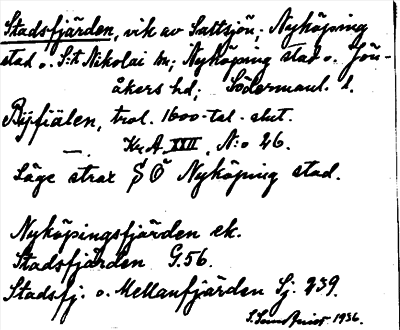 Stadsfjärden, vik av Saltsjön; Nyköping
stad o. S:t Nikolai sn; Nyköping stad o. Jön-
åkers hd; Södermanl. l.
Byfiälen, trol. 1600-tal-slut.
— Kr. A. XXII, N:o 26.
Läge strax S Ö Nyköping stad.
Nyköpingsfjärden ek.
Stadsfjärden G.56.
Stadsfj. o. Mellanfjärden Sj. 239.
1936.